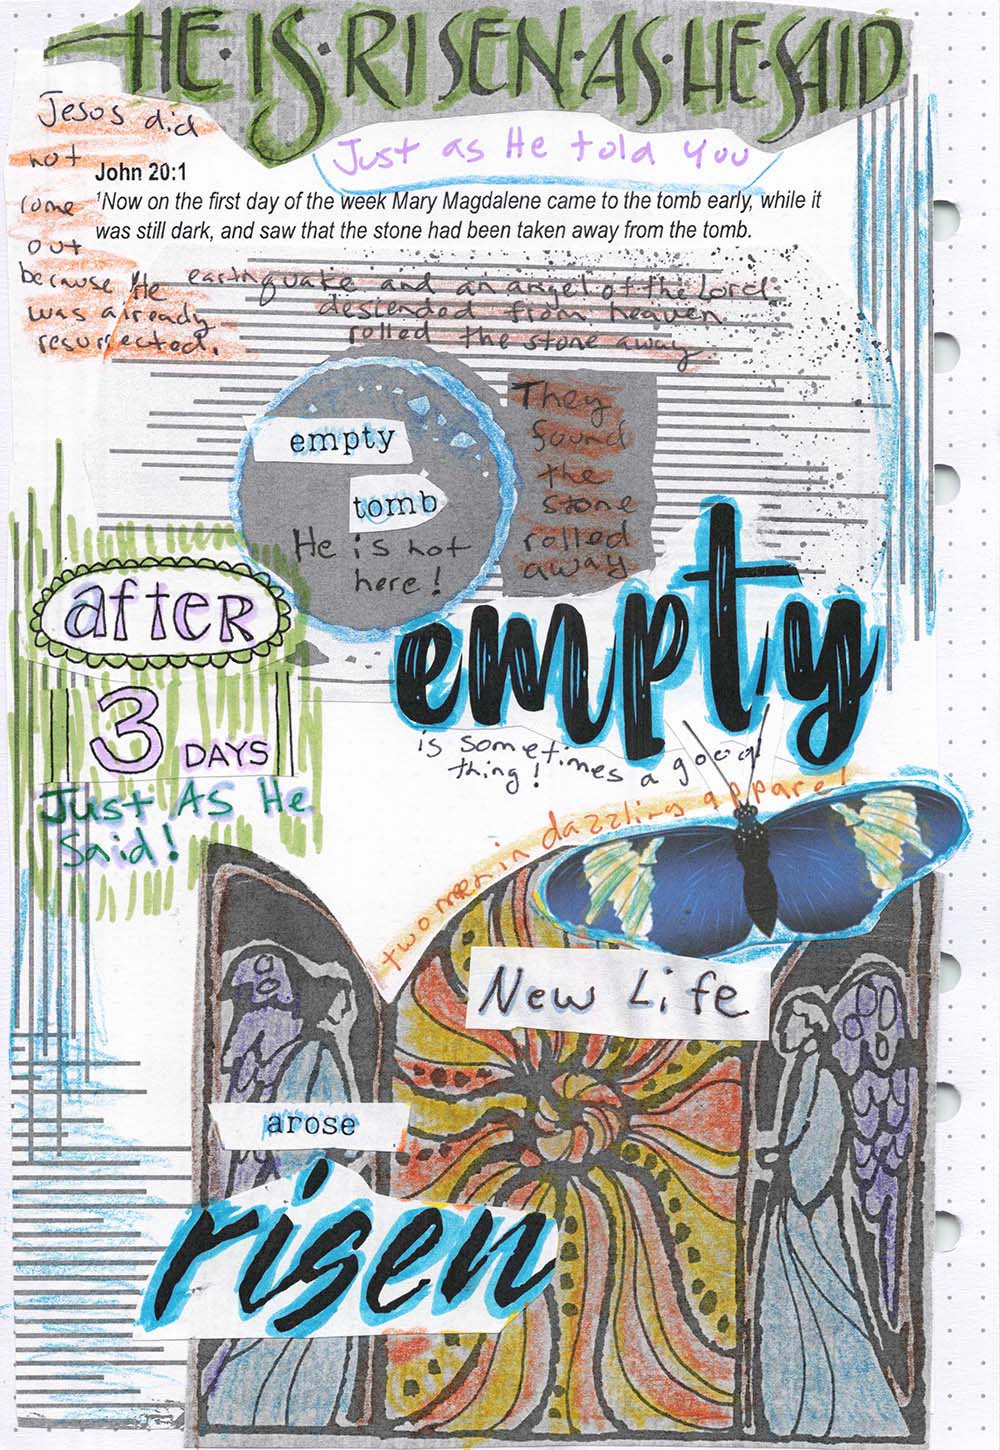 HE·IS·RISEN·AS·HE·SAID
Just as He told you
Jesus did
not
come
out
because He
was already
resurrected.
John 20:1
¹Now on the first day of the week Mary Magdalene came to the tomb early, while it
was still dark, and saw that the stone had been taken away from the tomb.
earthquake and an angel of the Lord
descended from heaven
rolled the stone away.
empty
tomb
He is not
here!
They
found
the
stone
rolled
away
after
3 DAYS
Just As He
Said!
empty
is sometimes a good
thing!
two men in dazzling apparel
New Life
arose
risen